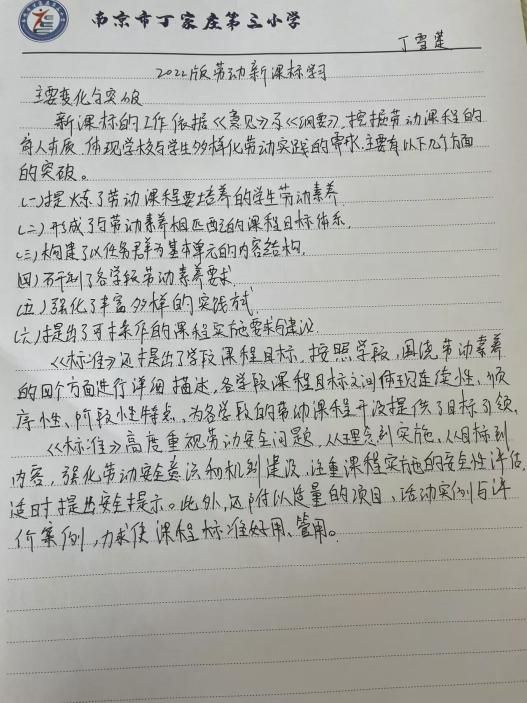 南京市丁家庄第三小学
丁雪莲
2022版劳动新课标学习
主要变化与突破
新课标的工作依据《意见》及《纲要》,挖掘劳动课程的
育人本质,体现学校与学生多样化劳动实践的需求,主要有以下几个方面
的突破。
(一)提炼了劳动课程要培养的学生劳动素养.
(二)形成了与劳动素养相匹配的课程目标体系.
(三)构建了以任务群为基本单元的内容结构.
(四)研制了各学段劳动素养要求.
(五)强化了丰富多样的实践方式.
(六)提出了可操作的课程实施要求与建议.
《标准》还提出了学段课程目标,按照学段,围绕劳动素养
的四个方面进行详细描述,各学段课程目标之间体现连续性、顺
序性、阶段性特点,为各学段的劳动课程开设提供了目标引领.
《标准》高度重视劳动安全问题,从理念到实施,从目标到
内容,强化劳动安全意识和机制建设,注重课程实施的安全性评估,
适时提出安全提示。此外,还附以适量的项目、活动实例与评
价案例,力求使课程标准好用、管用。